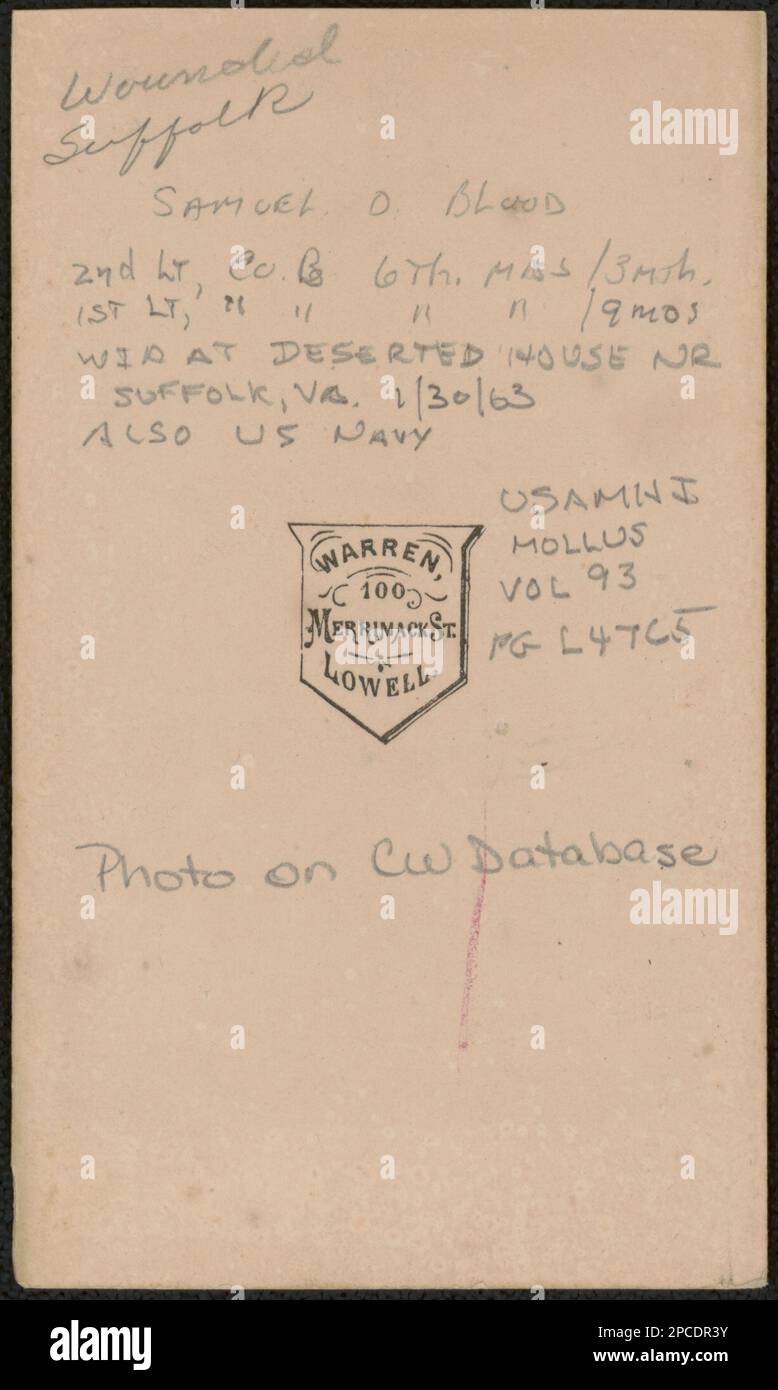 Wounded
Suffolk
SAMUEL D. BLOOD
2nd LT, Co. B 6TH. MASS /3 mth.
1ST LT, " " " " /9 mos
WIA AT DESERTED HOUSE NR
SUFFOLK, VA. 1/30/63
ALSO US NAVY
USAMHI
MOLLUS
VOL 93
PG L4765
WARREN,
100
MERRIMACK ST.
LOWELL.
Photo on CW Database
alamy
alamy
alamy
alamy
Image ID: 2PCDR3Y
www.alamy.com